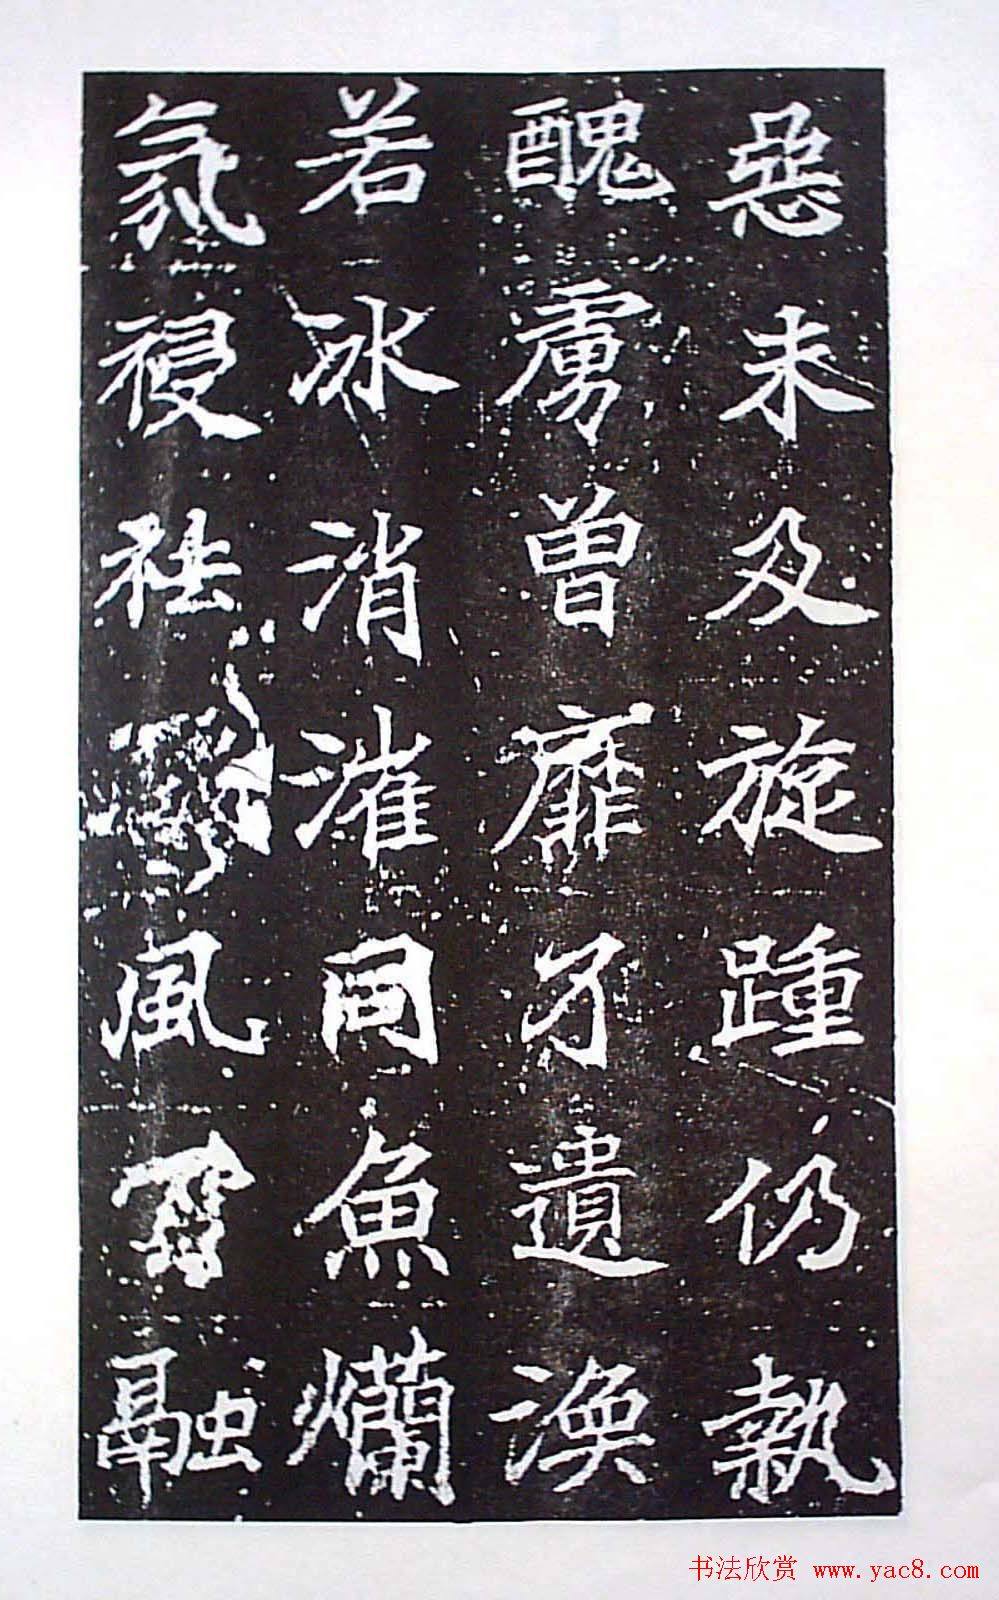 惡未及旋踵仍執
醜虜曾靡孑遺渙
若冰消漼同魚爛
氛祲祛風融
书法欣赏 www.yac8.com